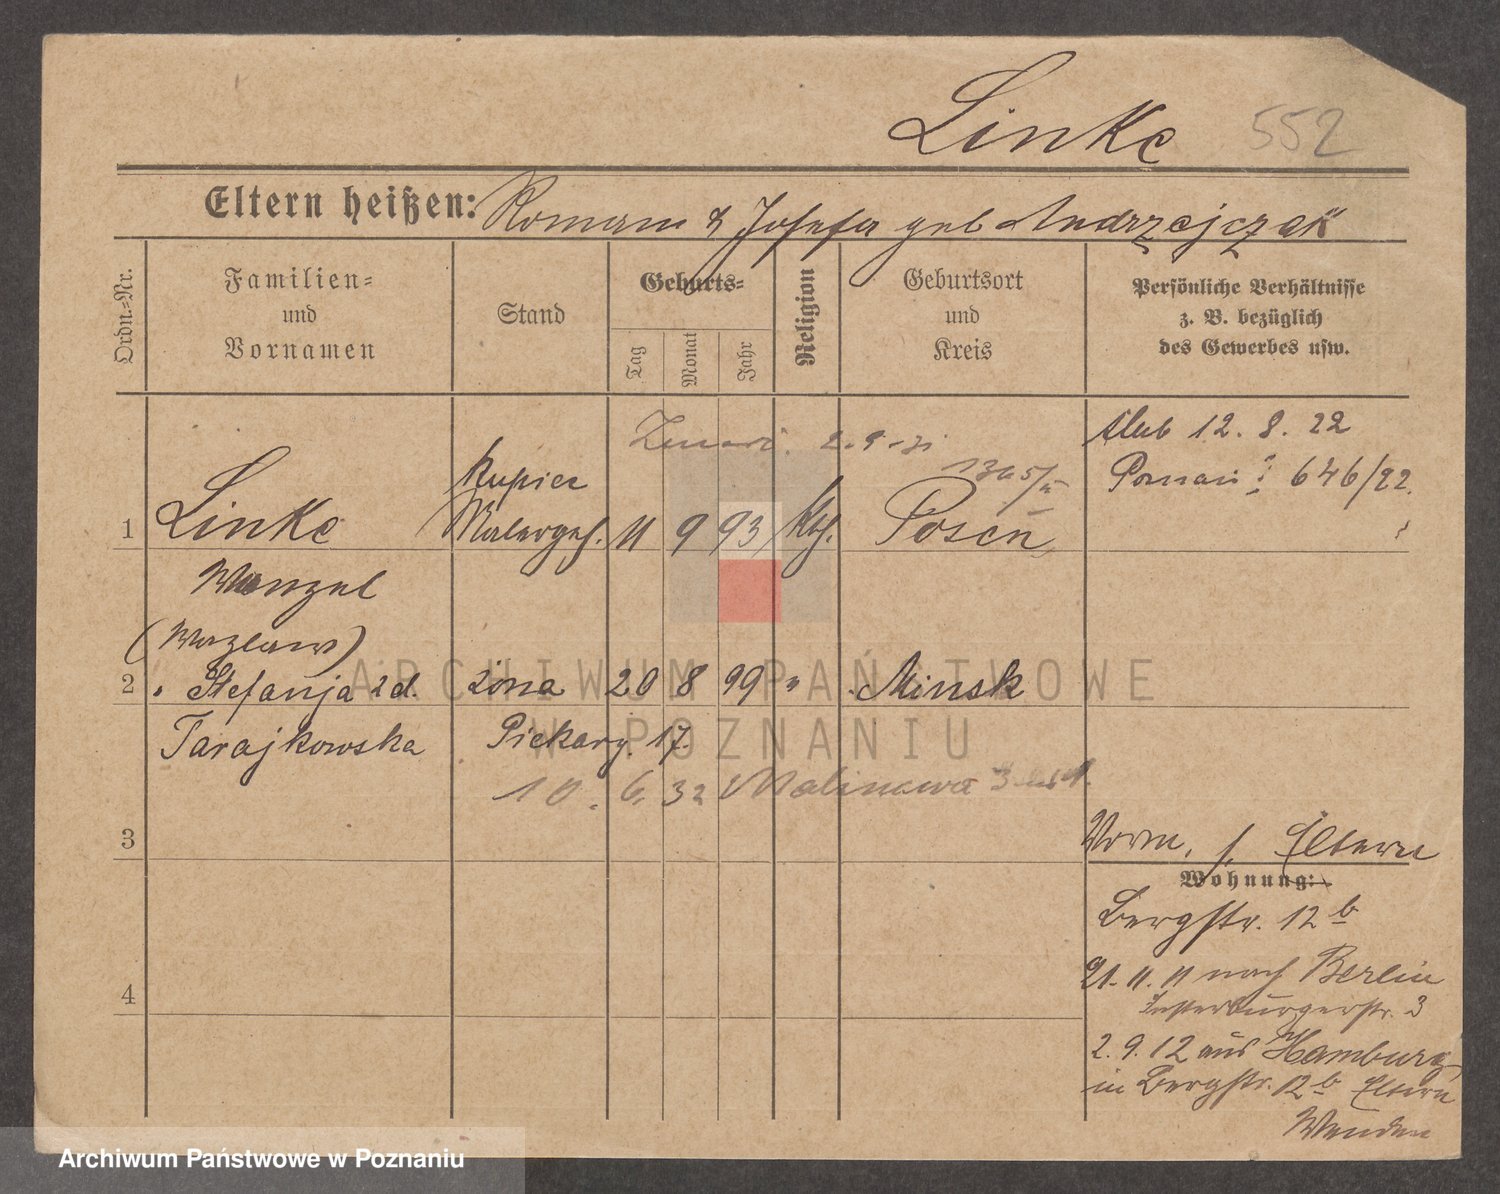 Linke 552
Eltern heißen: Roman & Josefa geb Andrzejczak
Ordn.-Nr.
Familien-
und
Vornamen
Stand
Geburts-
Tag
Monat
Jahr
Religion
Geburtsort
und
Kreis
Persönliche Verhältnisse
z. B. bezüglich
des Gewerbes usw.
Zmarł. 2.9.31
1305/
ślub 12. 8. 22
Poznań 646/22.
kupiec
1 Linke Malergeh. 11 9 93 kth. Posen
Wenzel
(Wazlaw)
2 " Stefanja zd. żona 20 8 99 " Minsk
Tarajkowska Piekary. 17.
10. 6. 32 Malinowa
3
Vorm. s. Eltern
Wohnung:
Bergstr. 12 b
21. 11. 11 nach Berlin
Insterburgerstr. 3
2. 9. 12 aus Hamburg
in Bergstr. 12 b Eltern
4
ARCHIWUM PAŃSTWOWE
W POZNANIU
Archiwum Państwowe w Poznaniu